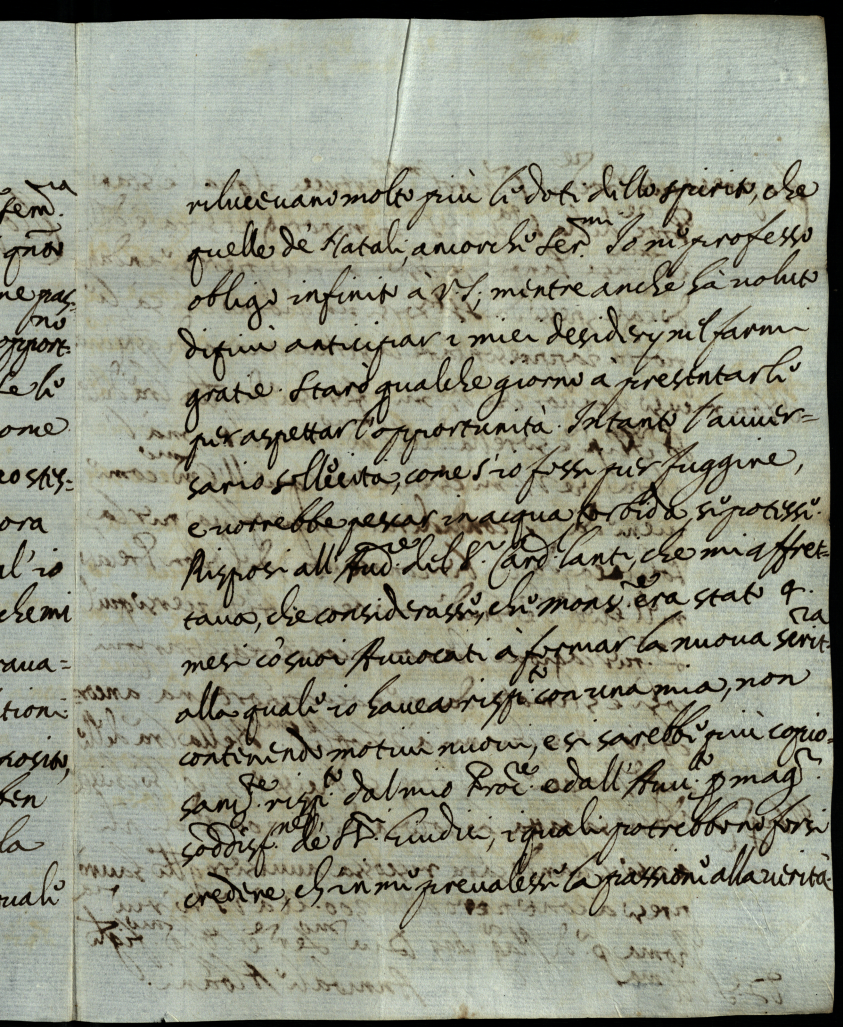 rilucevano molto più le doti dello spirito, che
quelle dè Natali, ancorche Ser.mi Io mi professo
obligo infinito à VS, mentre anche hà voluto
di più anticipar i miei desiderij nel farmi
gratie. Starò qualche giorno a presentarle
per aspettar l'opportunità. Intanto l'auuer=
sario sollecita, come s'io fossi per fuggire,
e uorrebbe pescar in acqua torbida, se potesse.
Risposi all'Aud.re del S.r Card. Lanti, che mi affret=
taua, che considerasse, che mons.re era stato 4.
mesi có suoi Auuocati à formar la nuoua scrit.ra
alla quale io hauea risp.to con una mia, non
contenendo motiui nuoui, e si sarebbe più copio=
sam.te risp.to dal mio Proc.re e dall'Auu.to p mag.r
soddisf.ne dé SS.ri Giudici, i quali potrebbono forsi
credere, ch'in me preualesse la passione alla uerità
fem.ra
gno
ne pas=
opport.no
le
ome
costis=
ora
al'io
che mi
raua=
tioni
rosito,
ben
la
quali